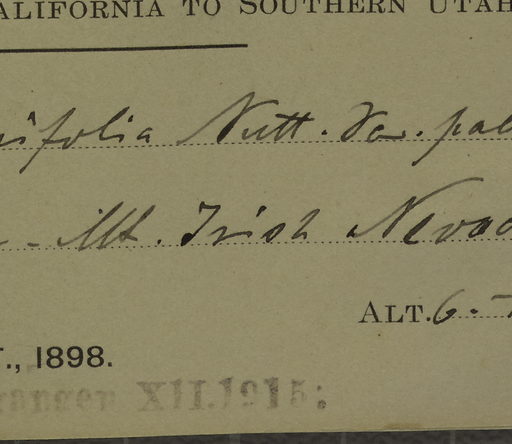 ALIFORNIA TO SOUTHERN UTAH
ifolia Nutt. Var. pal
- Mt. Irish Nevad
ALT. 6.-
T., 1898.
rangen XII.1915: